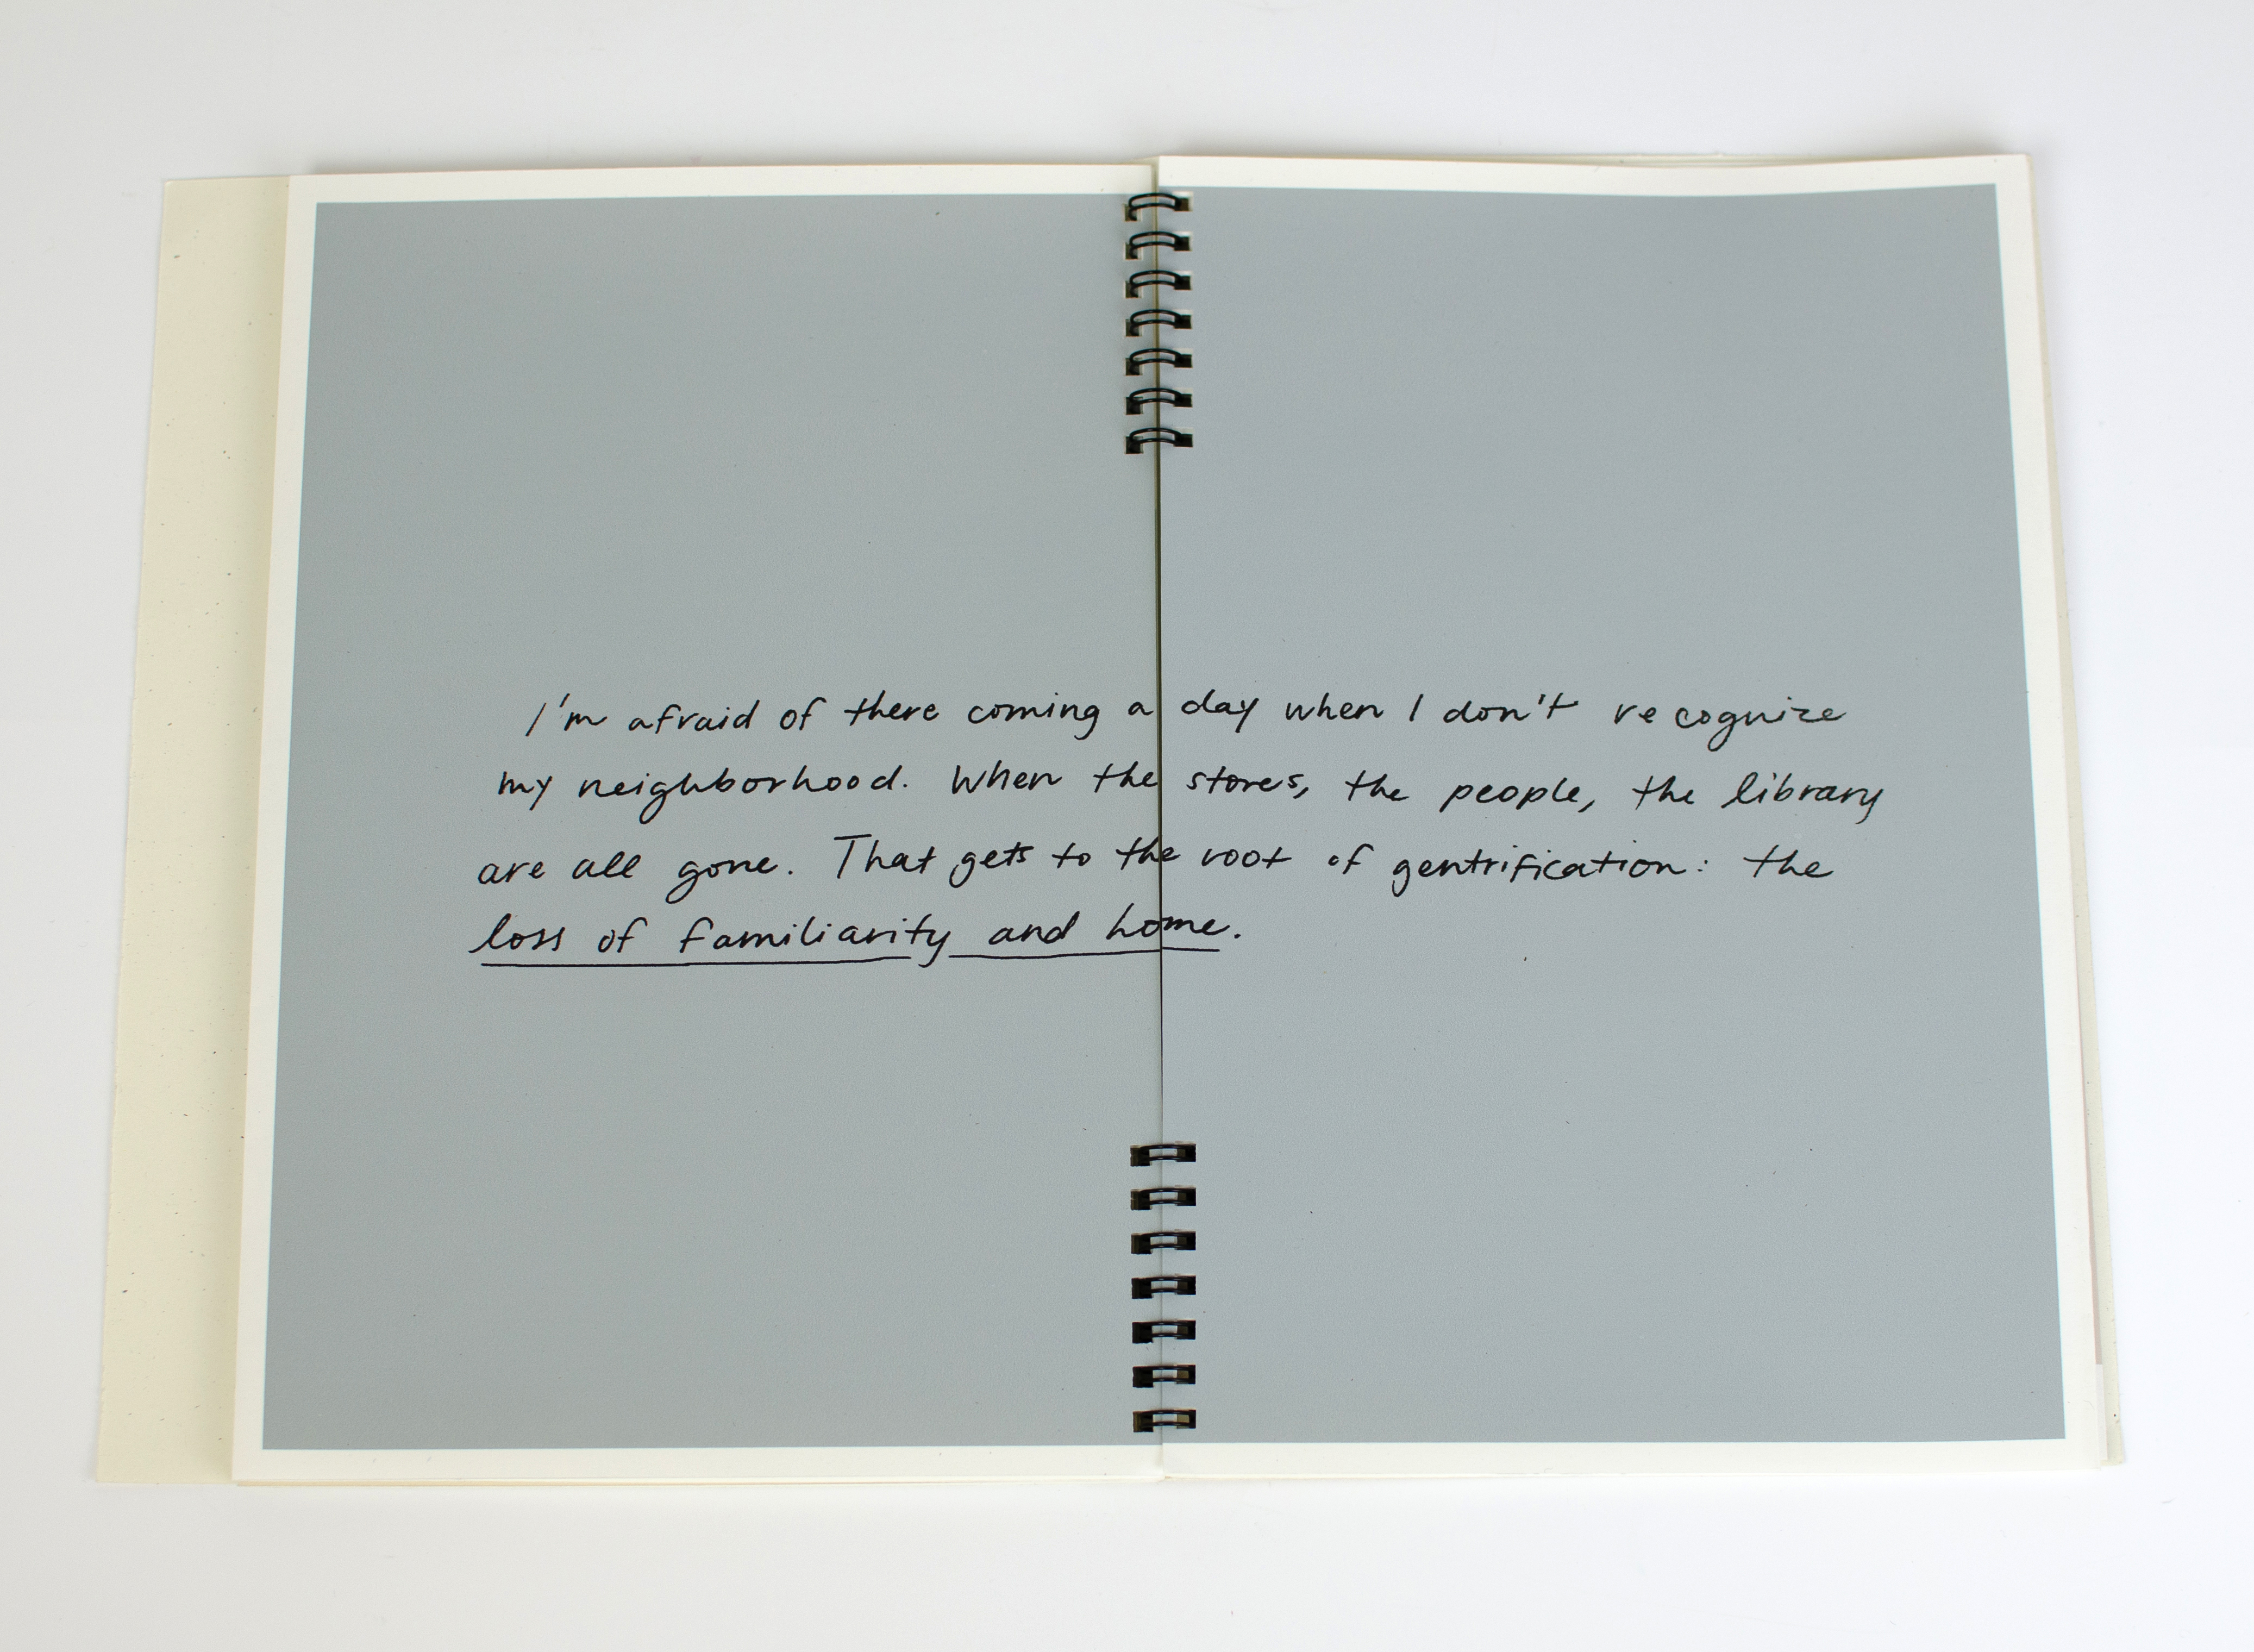 I'm afraid of there coming a day when I don't recognize
my neighborhood. When the stores, the people, the library
are all gone. That gets to the root of gentrification: the
loss of familiarity and home.